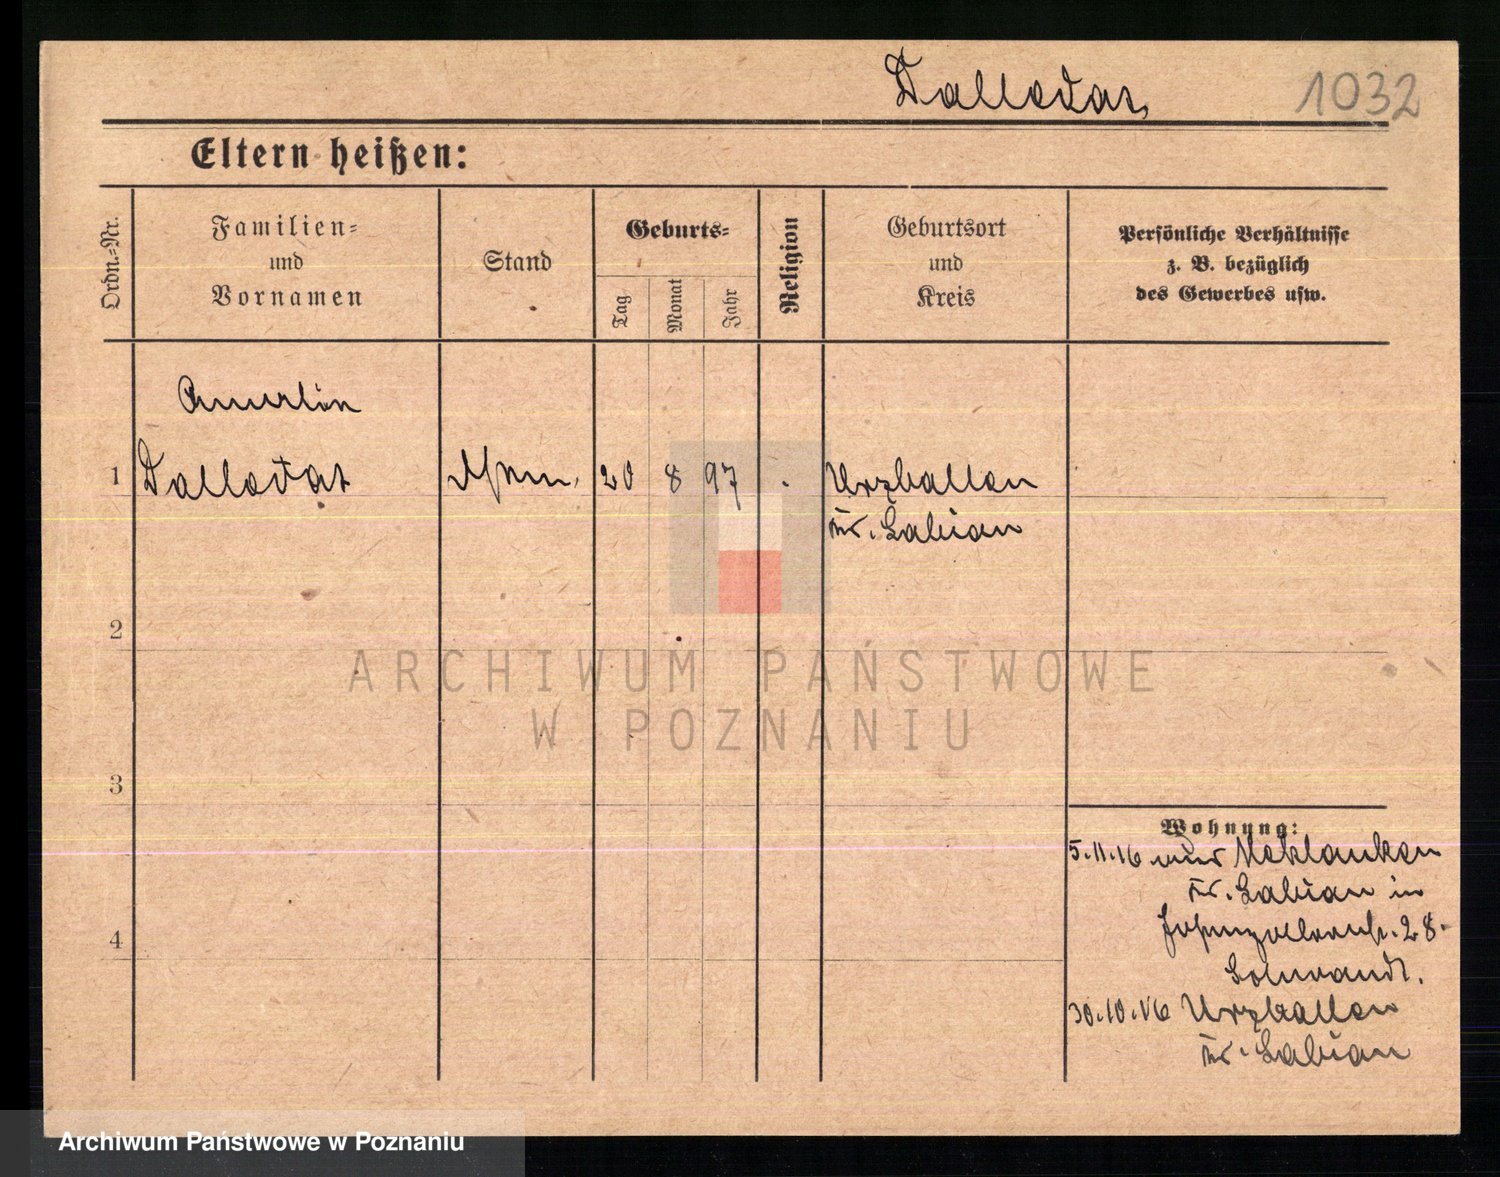 Dallodat
1032
Eltern heißen:
Ordn.-Nr.
Familien-
und
Vornamen
Stand
Geburts-
Tag
Monat
Jahr
Religion
Geburtsort
und
Kreis
Persönliche Verhältnisse
z. B. bezüglich
des Gewerbes usw.
1 Dallodat 20 8 97 Urzballen
Kr. Labiau
2
ARCHIWUM PAŃSTWOWE
W POZNANIU
3
Wohnung:
5.11.16
Kr. Labiau in
28.
4
30.10.16 Urzballen
Kr. Labiau
Archiwum Państwowe w Poznaniu